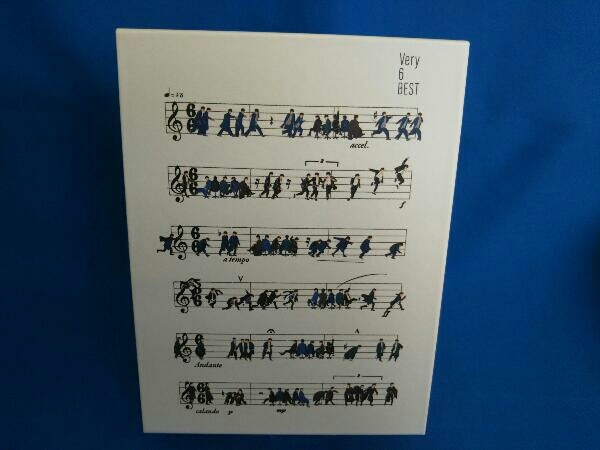 Very
6
BEST
accel.
f
a tempo
ff
Andante
calando p mp